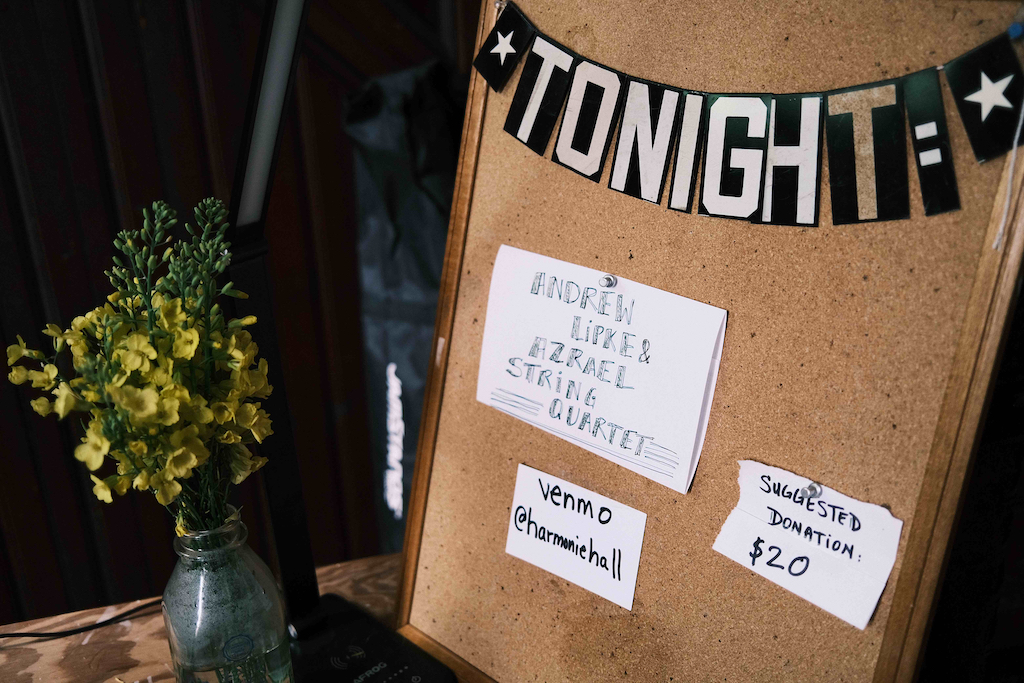 TONIGHT:
ANDREW
LiPKE &
AZRAEL
STRiNG
QUARTET
venmo
@harmoniehall
SUGGESTED
DONATION:
$20